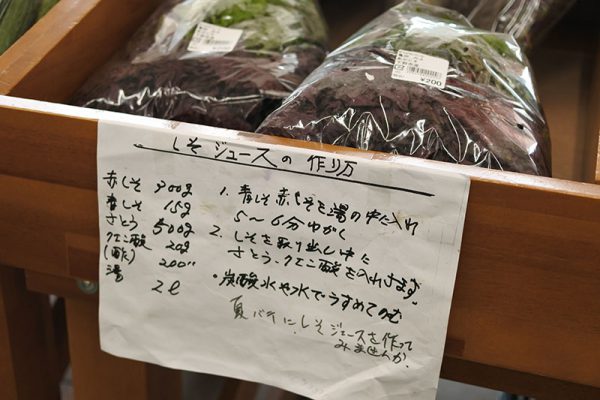 しそジュースの作り方
赤しそ 300g
青しそ 15g
さとう 500g
クエン酸 20g
(酢) 200〃
湯 2ℓ
1. 青しそ赤しそを湯の中に入れ
5〜6分ゆがく
2. しそを取り出し中に
さとう、クエン酸を入れさます。
・炭酸水や水でうすめてのむ
夏バテに、しそジュースを作って
みませんか。
¥200